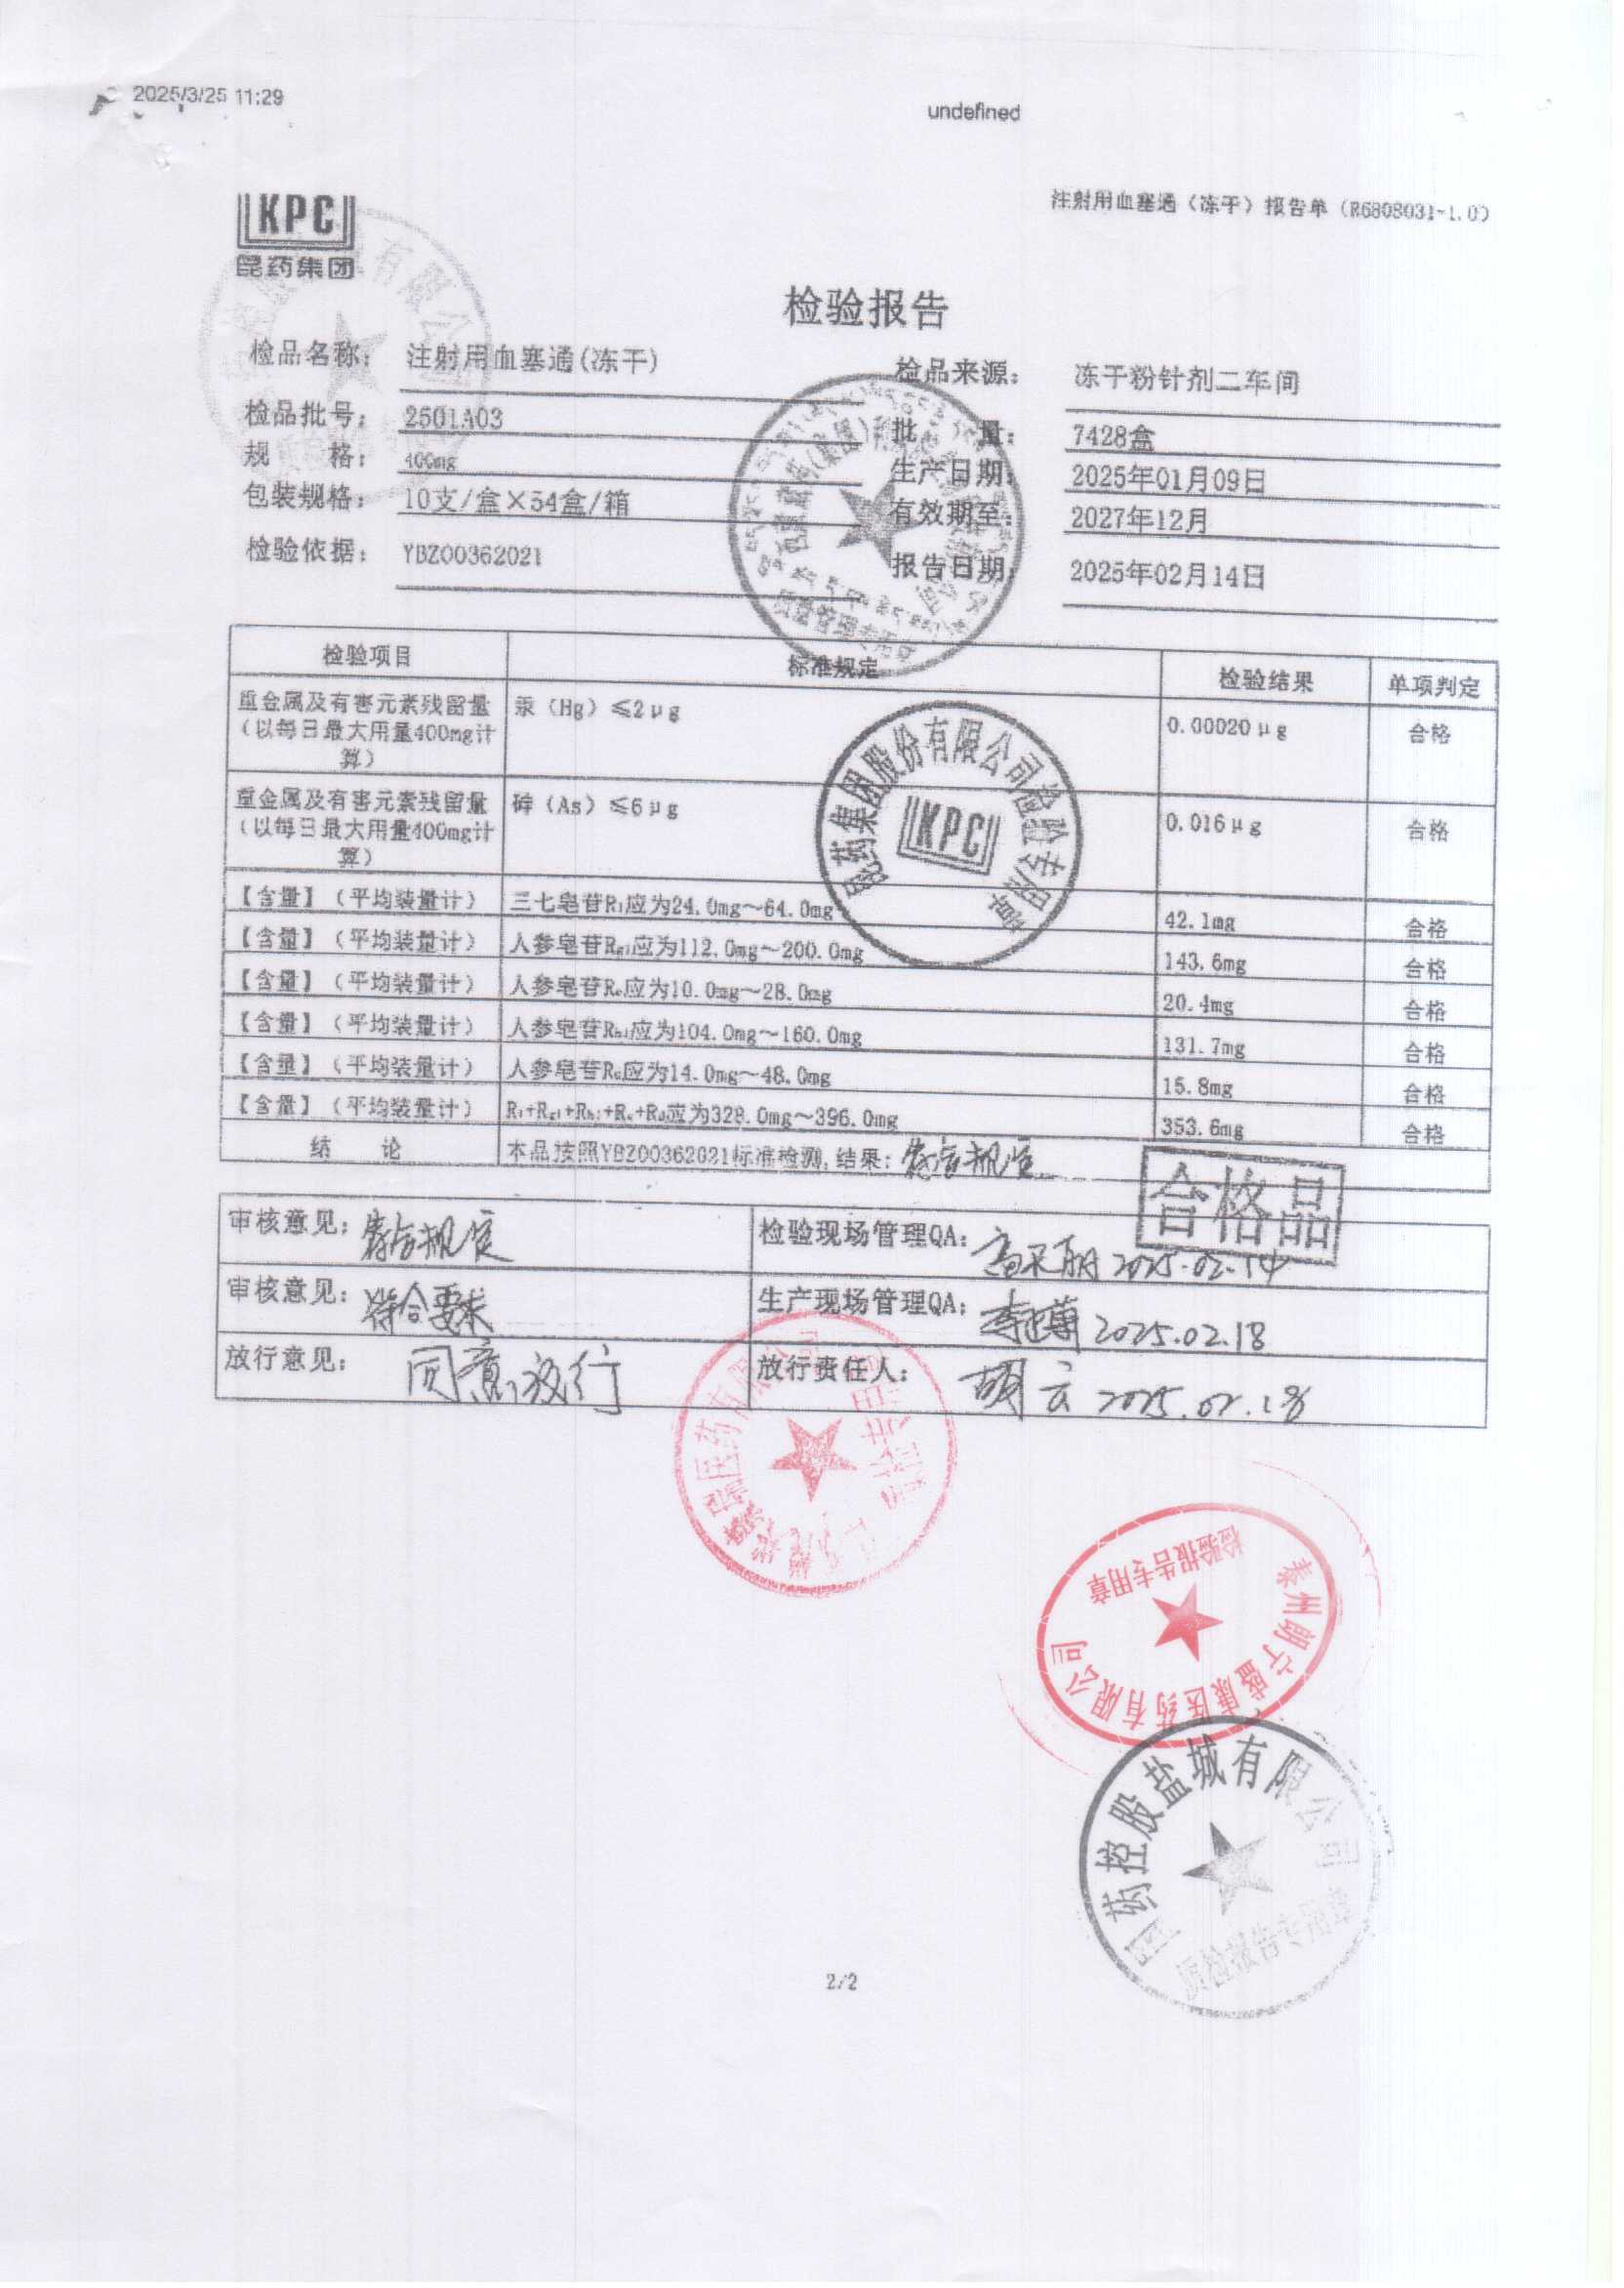 2025/3/25 11:29
undefined
KPC
昆药集团
注射用血塞通（冻干）报告单（R6808031-1.0）
检验报告
检品名称： 注射用血塞通(冻干) 检品来源： 冻干粉针剂二车间
检品批号： 2501A03 批 量： 7428盒
规 格： 400mg 生产日期： 2025年01月09日
包装规格： 10支/盒×54盒/箱 有效期至： 2027年12月
检验依据： YBZ00362021 报告日期： 2025年02月14日
检验项目 标准规定 检验结果 单项判定
重金属及有害元素残留量 汞（Hg）≤2μg 0.00020μg 合格
（以每日最大用量400mg计
算）
重金属及有害元素残留量 砷（As）≤6μg 0.016μg 合格
（以每日最大用量400mg计
算）
【含量】（平均装量计） 三七皂苷R₁应为24.0mg～64.0mg 42.1mg 合格
【含量】（平均装量计） 人参皂苷Rg₁应为112.0mg～200.0mg 143.6mg 合格
【含量】（平均装量计） 人参皂苷Re应为10.0mg～28.0mg 20.4mg 合格
【含量】（平均装量计） 人参皂苷Rb₁应为104.0mg～160.0mg 131.7mg 合格
【含量】（平均装量计） 人参皂苷Rd应为14.0mg～48.0mg 15.8mg 合格
【含量】（平均装量计） R₁+Rg₁+Rb₁+Re+Rd应为328.0mg～396.0mg 353.6mg 合格
结 论 本品按照YBZ00362021标准检测,结果: 符合规定
合格品
审核意见： 符合规定 检验现场管理QA： 2025.02.14
审核意见： 符合要求 生产现场管理QA： 2025.02.18
放行意见： 同意放行 放行责任人： 胡云 2025.02.18
昆药集团股份有限公司检验专用章
KPC
质量管理专用章
医药有限公司
泰州朗宁盛康医药有限公司
检验报告专用章
国药控股盐城有限公司
质检报告专用章
2/2